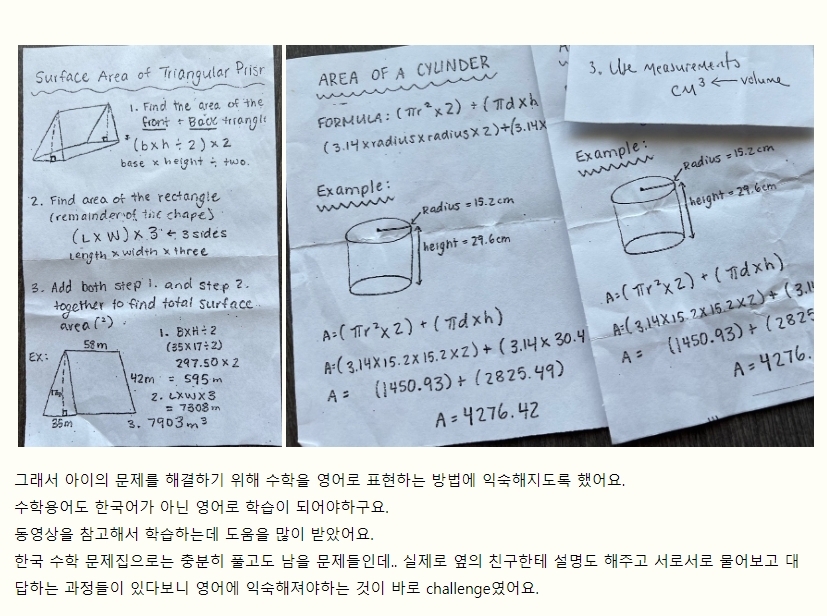 Surface Area of Triangular Prisr
1. Find the area of the
front + Back triangle
(bxh÷2)×2
base × height ÷ two.
2. Find area of the rectangle
(remainder of the shape)
(L×W)×3 ← 3 sides
Length × width × three
3. Add both step 1. and step 2.
together to find total surface
area (²)
EX:
58m
42m
35m
1. B×H÷2
(35×17÷2)
297.50×2
= 595m
2. L×W×3
= 7308m
3. 7903m³
AREA OF A CYLINDER
FORMULA: (πr²×2) + (πd×h
(3.14×radius×radius×2)+(3.14×
Example:
Radius = 15.2cm
height = 29.6cm
A=(πr²×2) + (πd×h)
A=(3.14×15.2×15.2×2) + (3.14×30.4
A = (1450.93) + (2825.49)
A = 4276.42
3. Use measurements
CM³ ← volume
Example:
Radius = 15.2cm
height = 29.6cm
A=(πr²×2) + (πd×h)
A=(3.14×15.2×15.2×2) + (3.1
A = (1450.93) + (2825
A = 4276.
그래서 아이의 문제를 해결하기 위해 수학을 영어로 표현하는 방법에 익숙해지도록 했어요.
수학용어도 한국어가 아닌 영어로 학습이 되어야하구요.
동영상을 참고해서 학습하는데 도움을 많이 받았어요.
한국 수학 문제집으로는 충분히 풀고도 남을 문제들인데.. 실제로 옆의 친구한테 설명도 해주고 서로서로 물어보고 대
답하는 과정들이 있다보니 영어에 익숙해져야하는 것이 바로 challenge였어요.